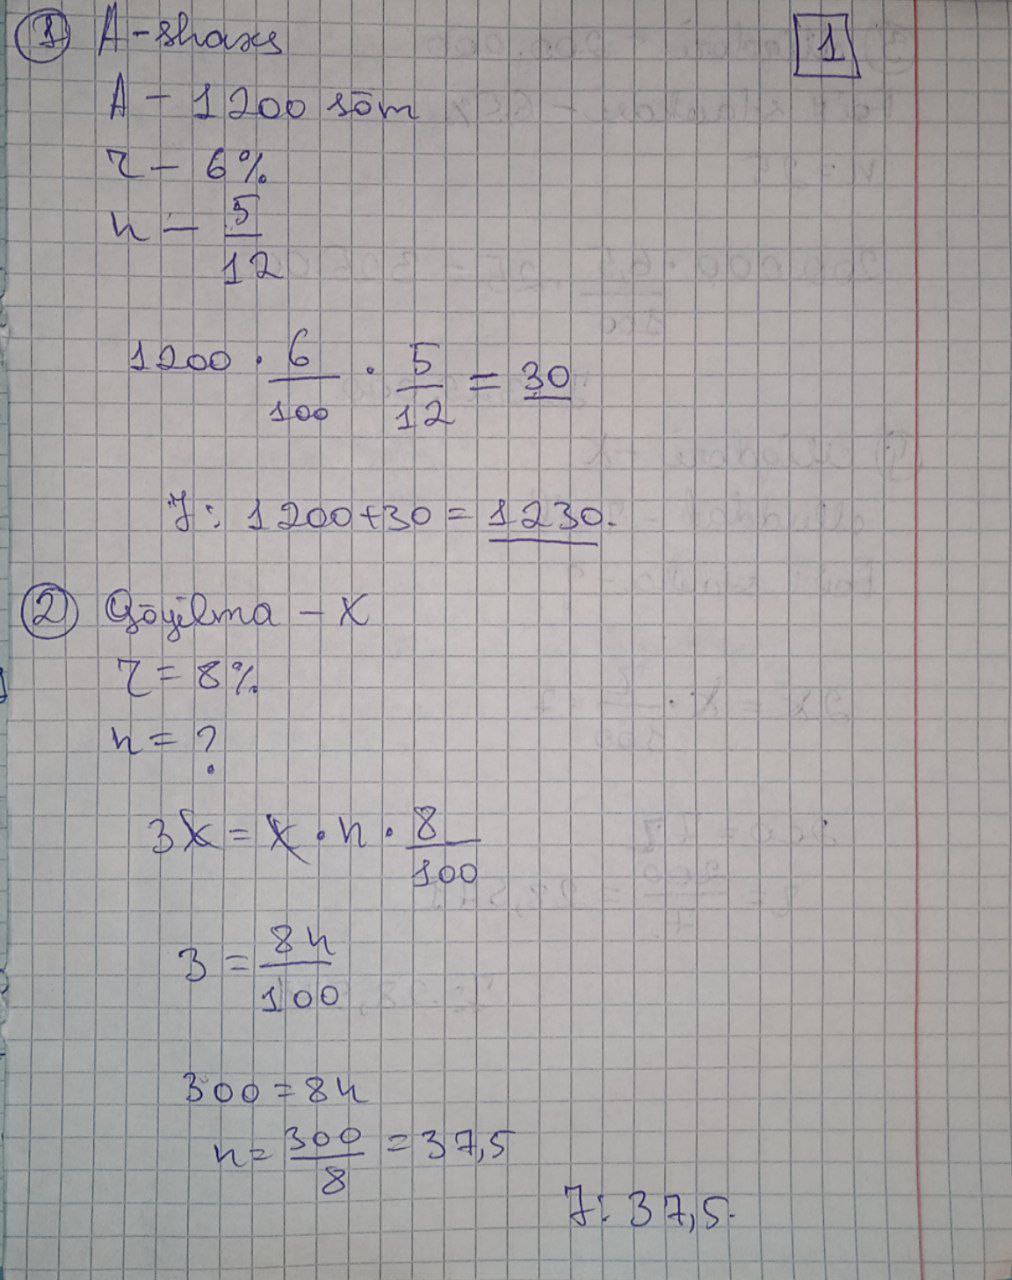 1
① A - shaxs
A - 1200 sōm
r - 6%
n - 5/12
1200 · 6/100 · 5/12 = 30
J: 1200+30 = 1230.
② Qōyilma - X
r = 8%
n = ?
3X = X · n · 8/100
3 = 8n/100
300 = 8n
n = 300/8 = 37,5
J: 37,5.